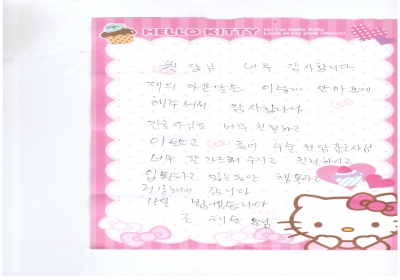 HELLO KITTY Hi! I'm Hello Kitty.
Look at my pink ribbon!
원장님 너무 감사합니다
저의 아픈 이렇게 안아프게
해주셔서 감사합니다
간호사님도 너무 친절하고
이쁘고 특히 수술 전담 간호사님
너무 잘 가르쳐 주시고 친절하시고
입원하고 있는동안 행복하고
건강해서 갑니다